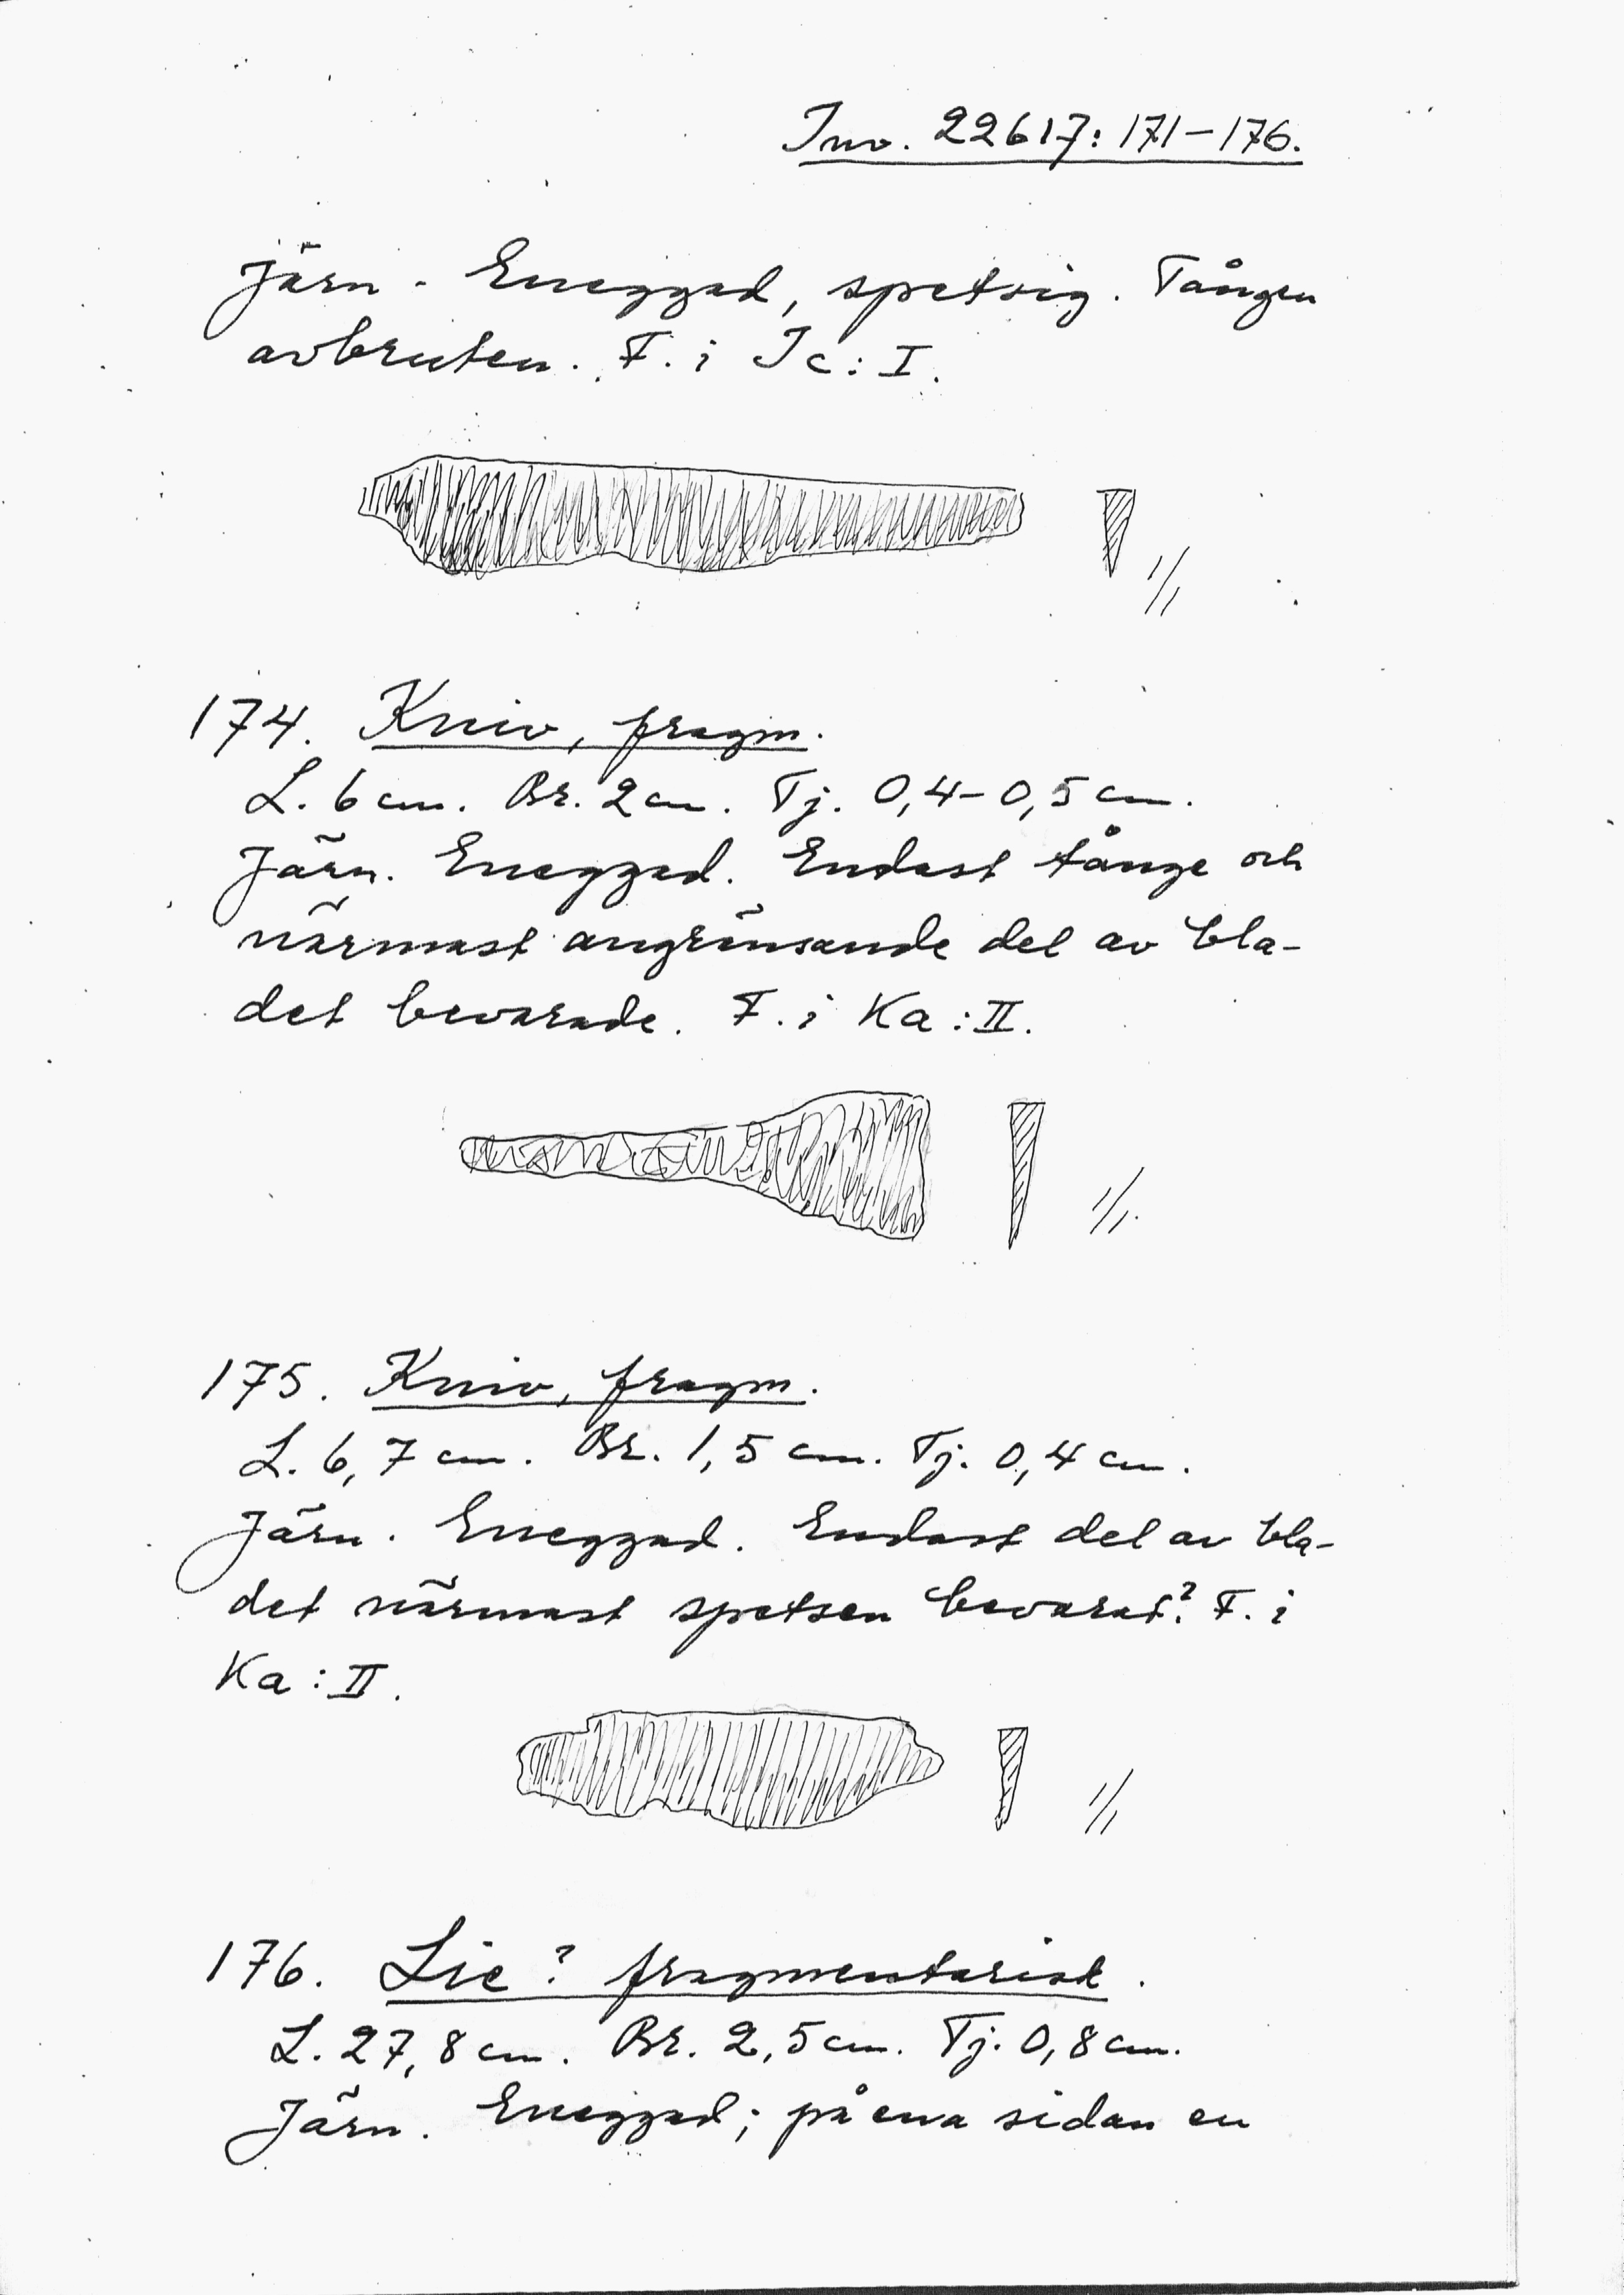 Inv. 22617: 171–176.
Järn. Eneggad, spetsig. Tången
avbruten. F. i Ic: I.
1/1
174. Kniv, fragm.
L. 6 cm. Br. 2 cm. Tj. 0,4–0,5 cm.
Järn. Eneggad. Endast tånge och
närmast angränsande del av bla-
det bevarade. F. i Ka: II.
1/1.
175. Kniv, fragm.
L. 6,7 cm. Br. 1,5 cm. Tj. 0,4 cm.
Järn. Eneggad. Endast del av bla-
det närmast spetsen bevarat? F. i
Ka: II.
1/1
176. Lie? fragmentarisk.
L. 27,8 cm. Br. 2,5 cm. Tj. 0,8 cm.
Järn. Eneggad; på ena sidan en